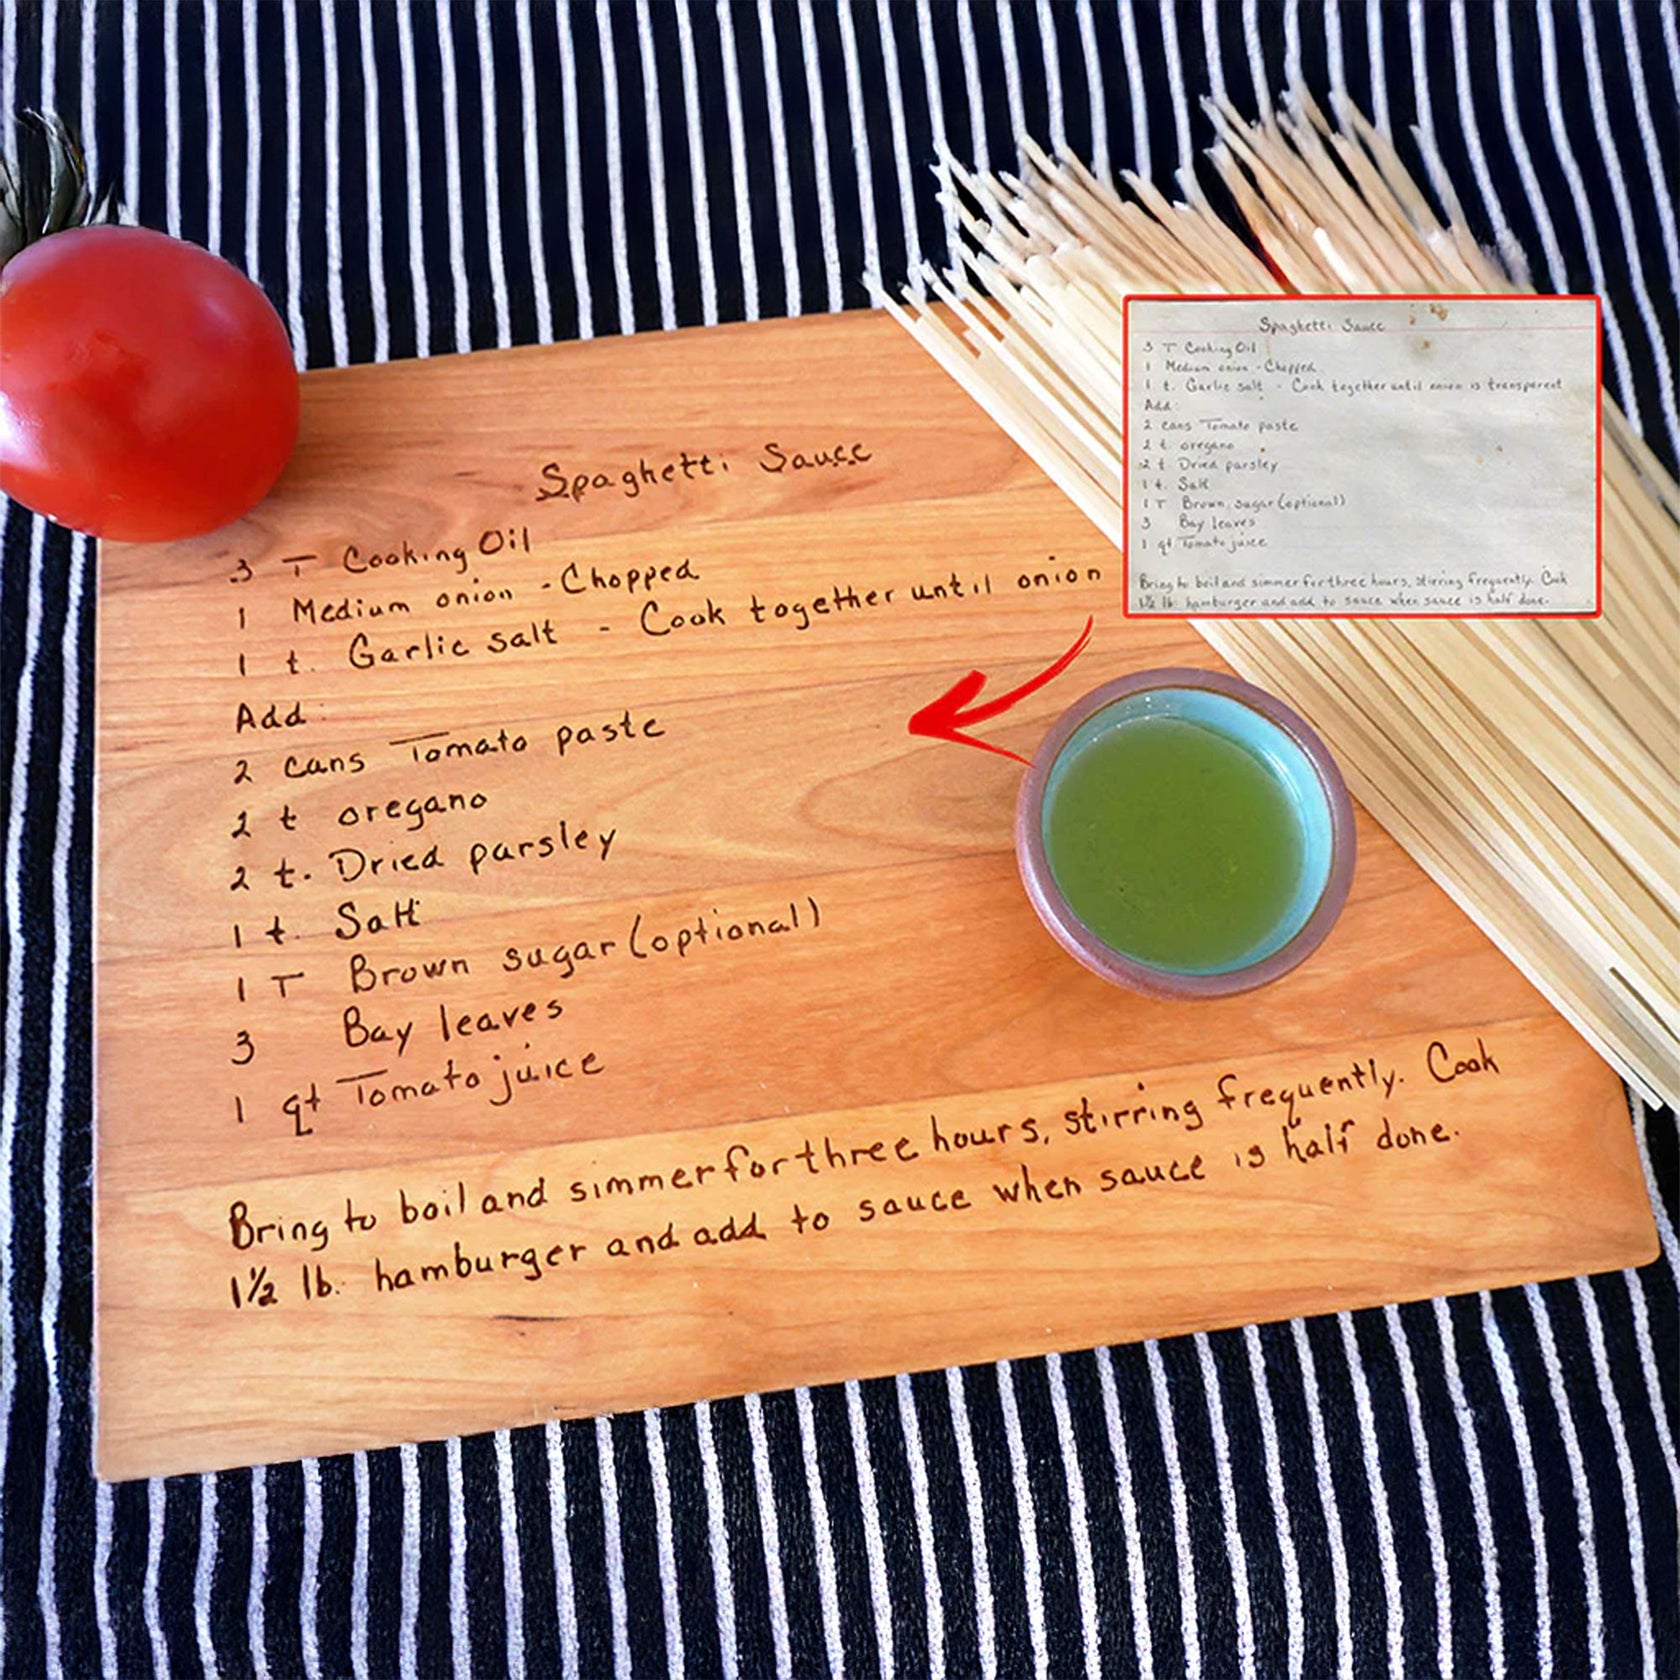 Spaghetti Sauce
3 T Cooking Oil
1 Medium onion - Chopped
1 t. Garlic salt - Cook together until onion
Add:
2 cans Tomato paste
2 t oregano
2 t. Dried parsley
1 t. Salt
1 T Brown sugar (optional)
3 Bay leaves
1 qt Tomato juice
Bring to boil and simmer for three hours, stirring frequently. Cook
1½ lb. hamburger and add to sauce when sauce is half done.
Spaghetti Sauce
3 T Cooking Oil
1 Medium onion - Chopped
1 t. Garlic salt - Cook together until onion is transparent
Add:
2 cans Tomato paste
2 t. oregano
2 t Dried parsley
1 t. Salt
1 T Brown sugar (optional)
3 Bay leaves
1 qt Tomato juice
Bring to boil and simmer for three hours, stirring frequently. Cook
1½ lb. hamburger and add to sauce when sauce is half done.